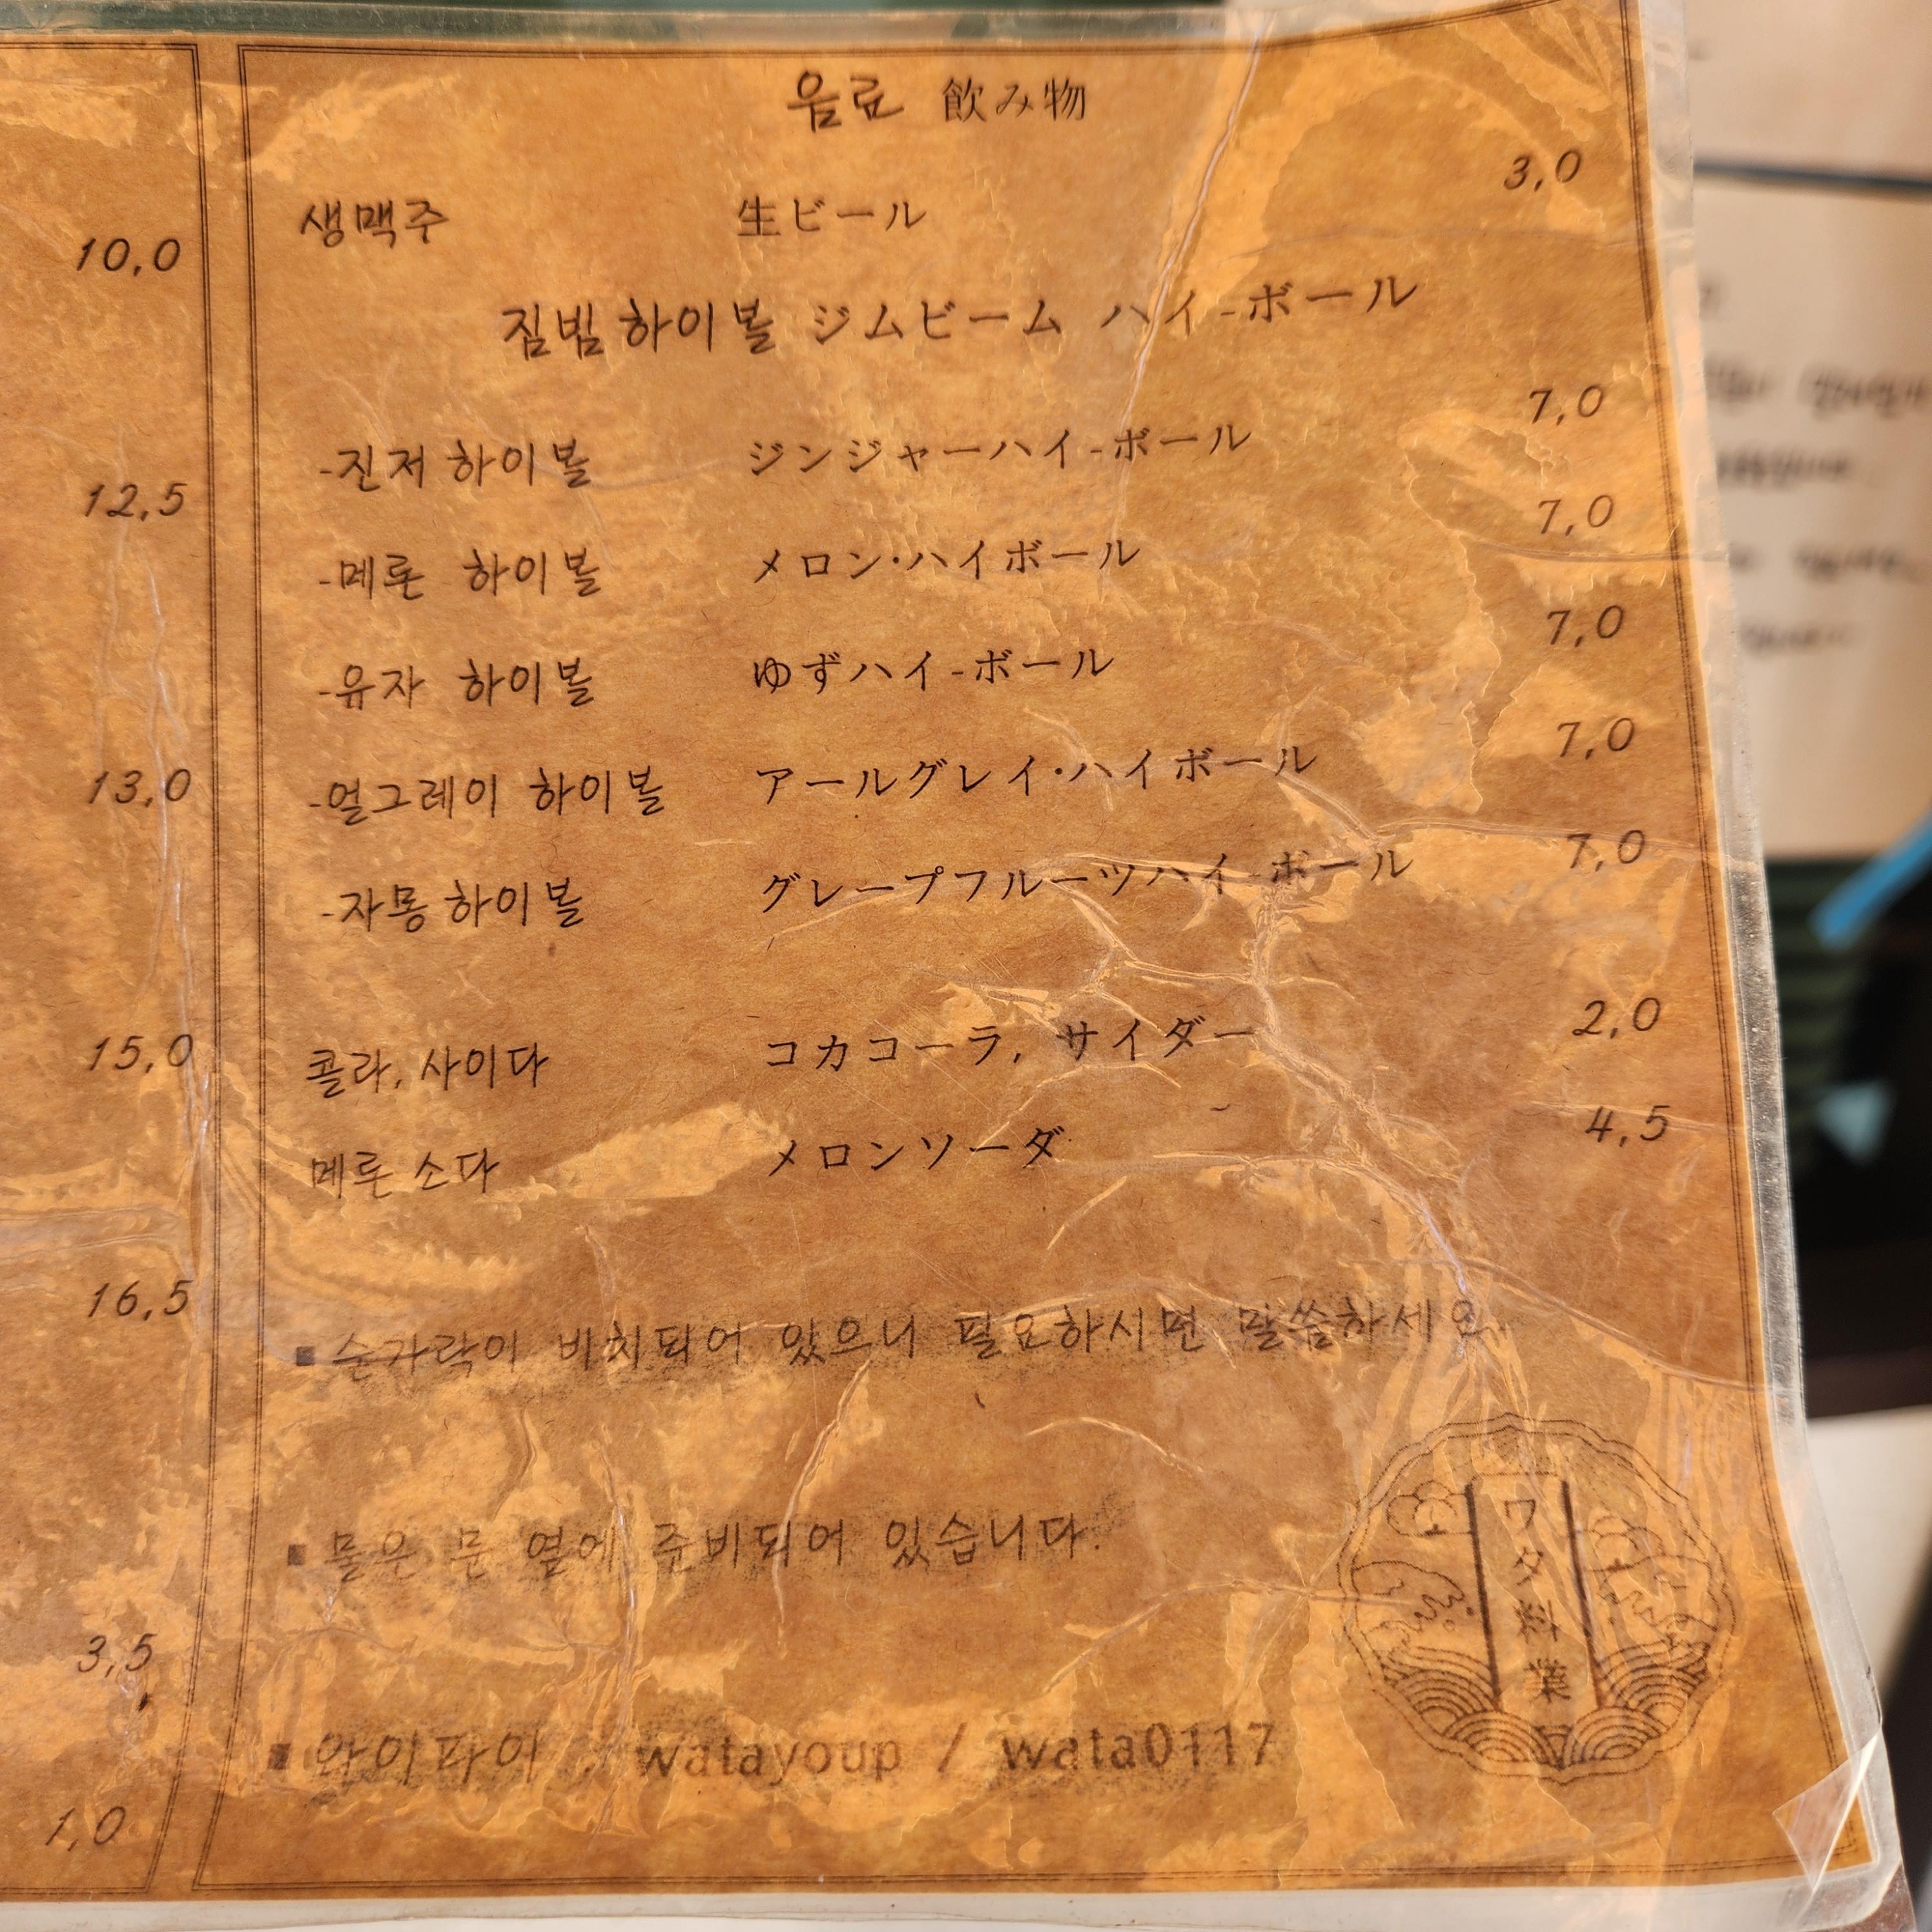 10,0
12,5
13,0
15,0
16,5
3,5
1,0
음료 飲み物
생맥주 生ビール 3,0
짐빔 하이볼 ジムビーム ハイ-ボール
-진저 하이볼 ジンジャーハイ-ボール 7,0
-메론 하이볼 メロン·ハイボール 7,0
-유자 하이볼 ゆずハイ-ボール 7,0
-얼그레이 하이볼 アールグレイ·ハイボール 7,0
-자몽 하이볼 グレープフルーツハイ-ボール 7,0
콜라, 사이다 コカコーラ, サイダー 2,0
메론 소다 メロンソーダ 4,5
■ 숟가락이 비치되어 있으니 필요하시면 말씀하세요.
■ 물은 문 옆에 준비되어 있습니다.
■ 와이파이 : watayoup / wata0117
ワタ料業